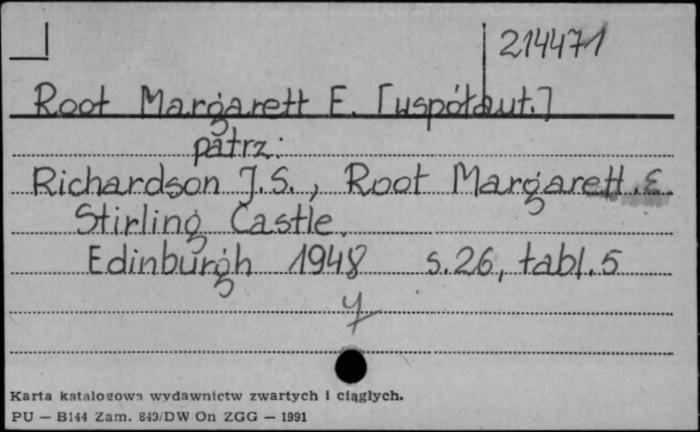 214471
Root Margarett E. [współaut.]
patrz:
Richardson J.S., Root Margarett E.
Stirling Castle.
Edinburgh 1948 s.26, tabl.5
Karta katalogowa wydawnictw zwartych i ciągłych.
PU — B144 Zam. 843/DW On ZGG — 1991